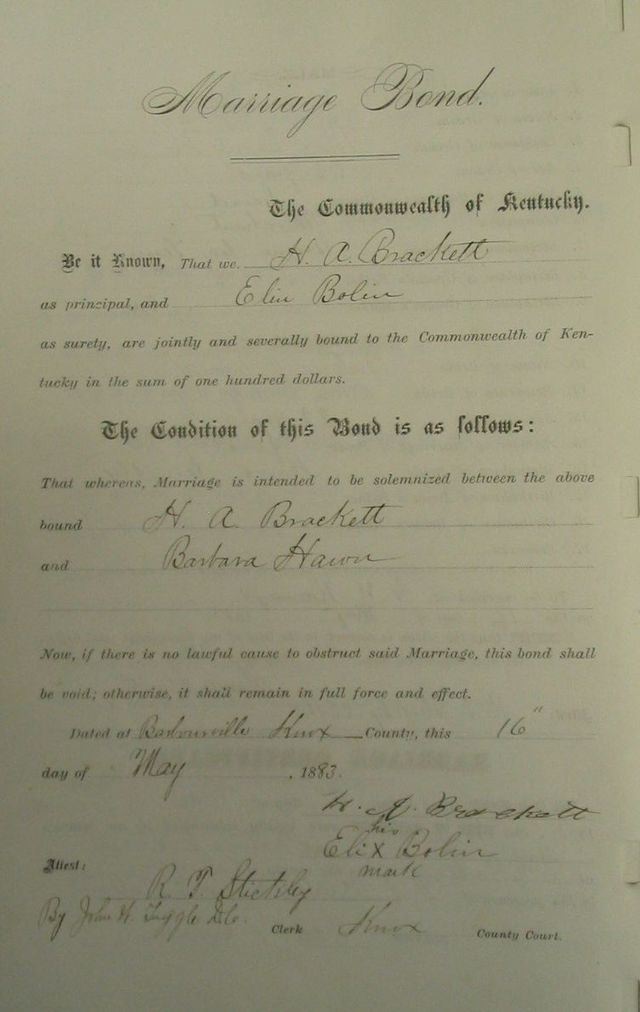 Marriage Bond.
The Commonwealth of Kentucky.
Be it Known, That we H. A. Brackett
as principal, and Elin Bolin
as surety, are jointly and severally bound to the Commonwealth of Ken-
tucky in the sum of one hundred dollars.
The Condition of this Bond is as follows:
That whereas, Marriage is intended to be solemnized between the above
bound H. A. Brackett
and Barbara Hawn
Now, if there is no lawful cause to obstruct said Marriage, this bond shall
be void; otherwise, it shall remain in full force and effect.
Dated at Barbourville Knox County, this 16"
day of May, 1883.
H. A. Brackett
his
Eli x Bolin
mark
Attest:
R. T. Stickley
By John H. Tuggle D.C.
Clerk Knox County Court.